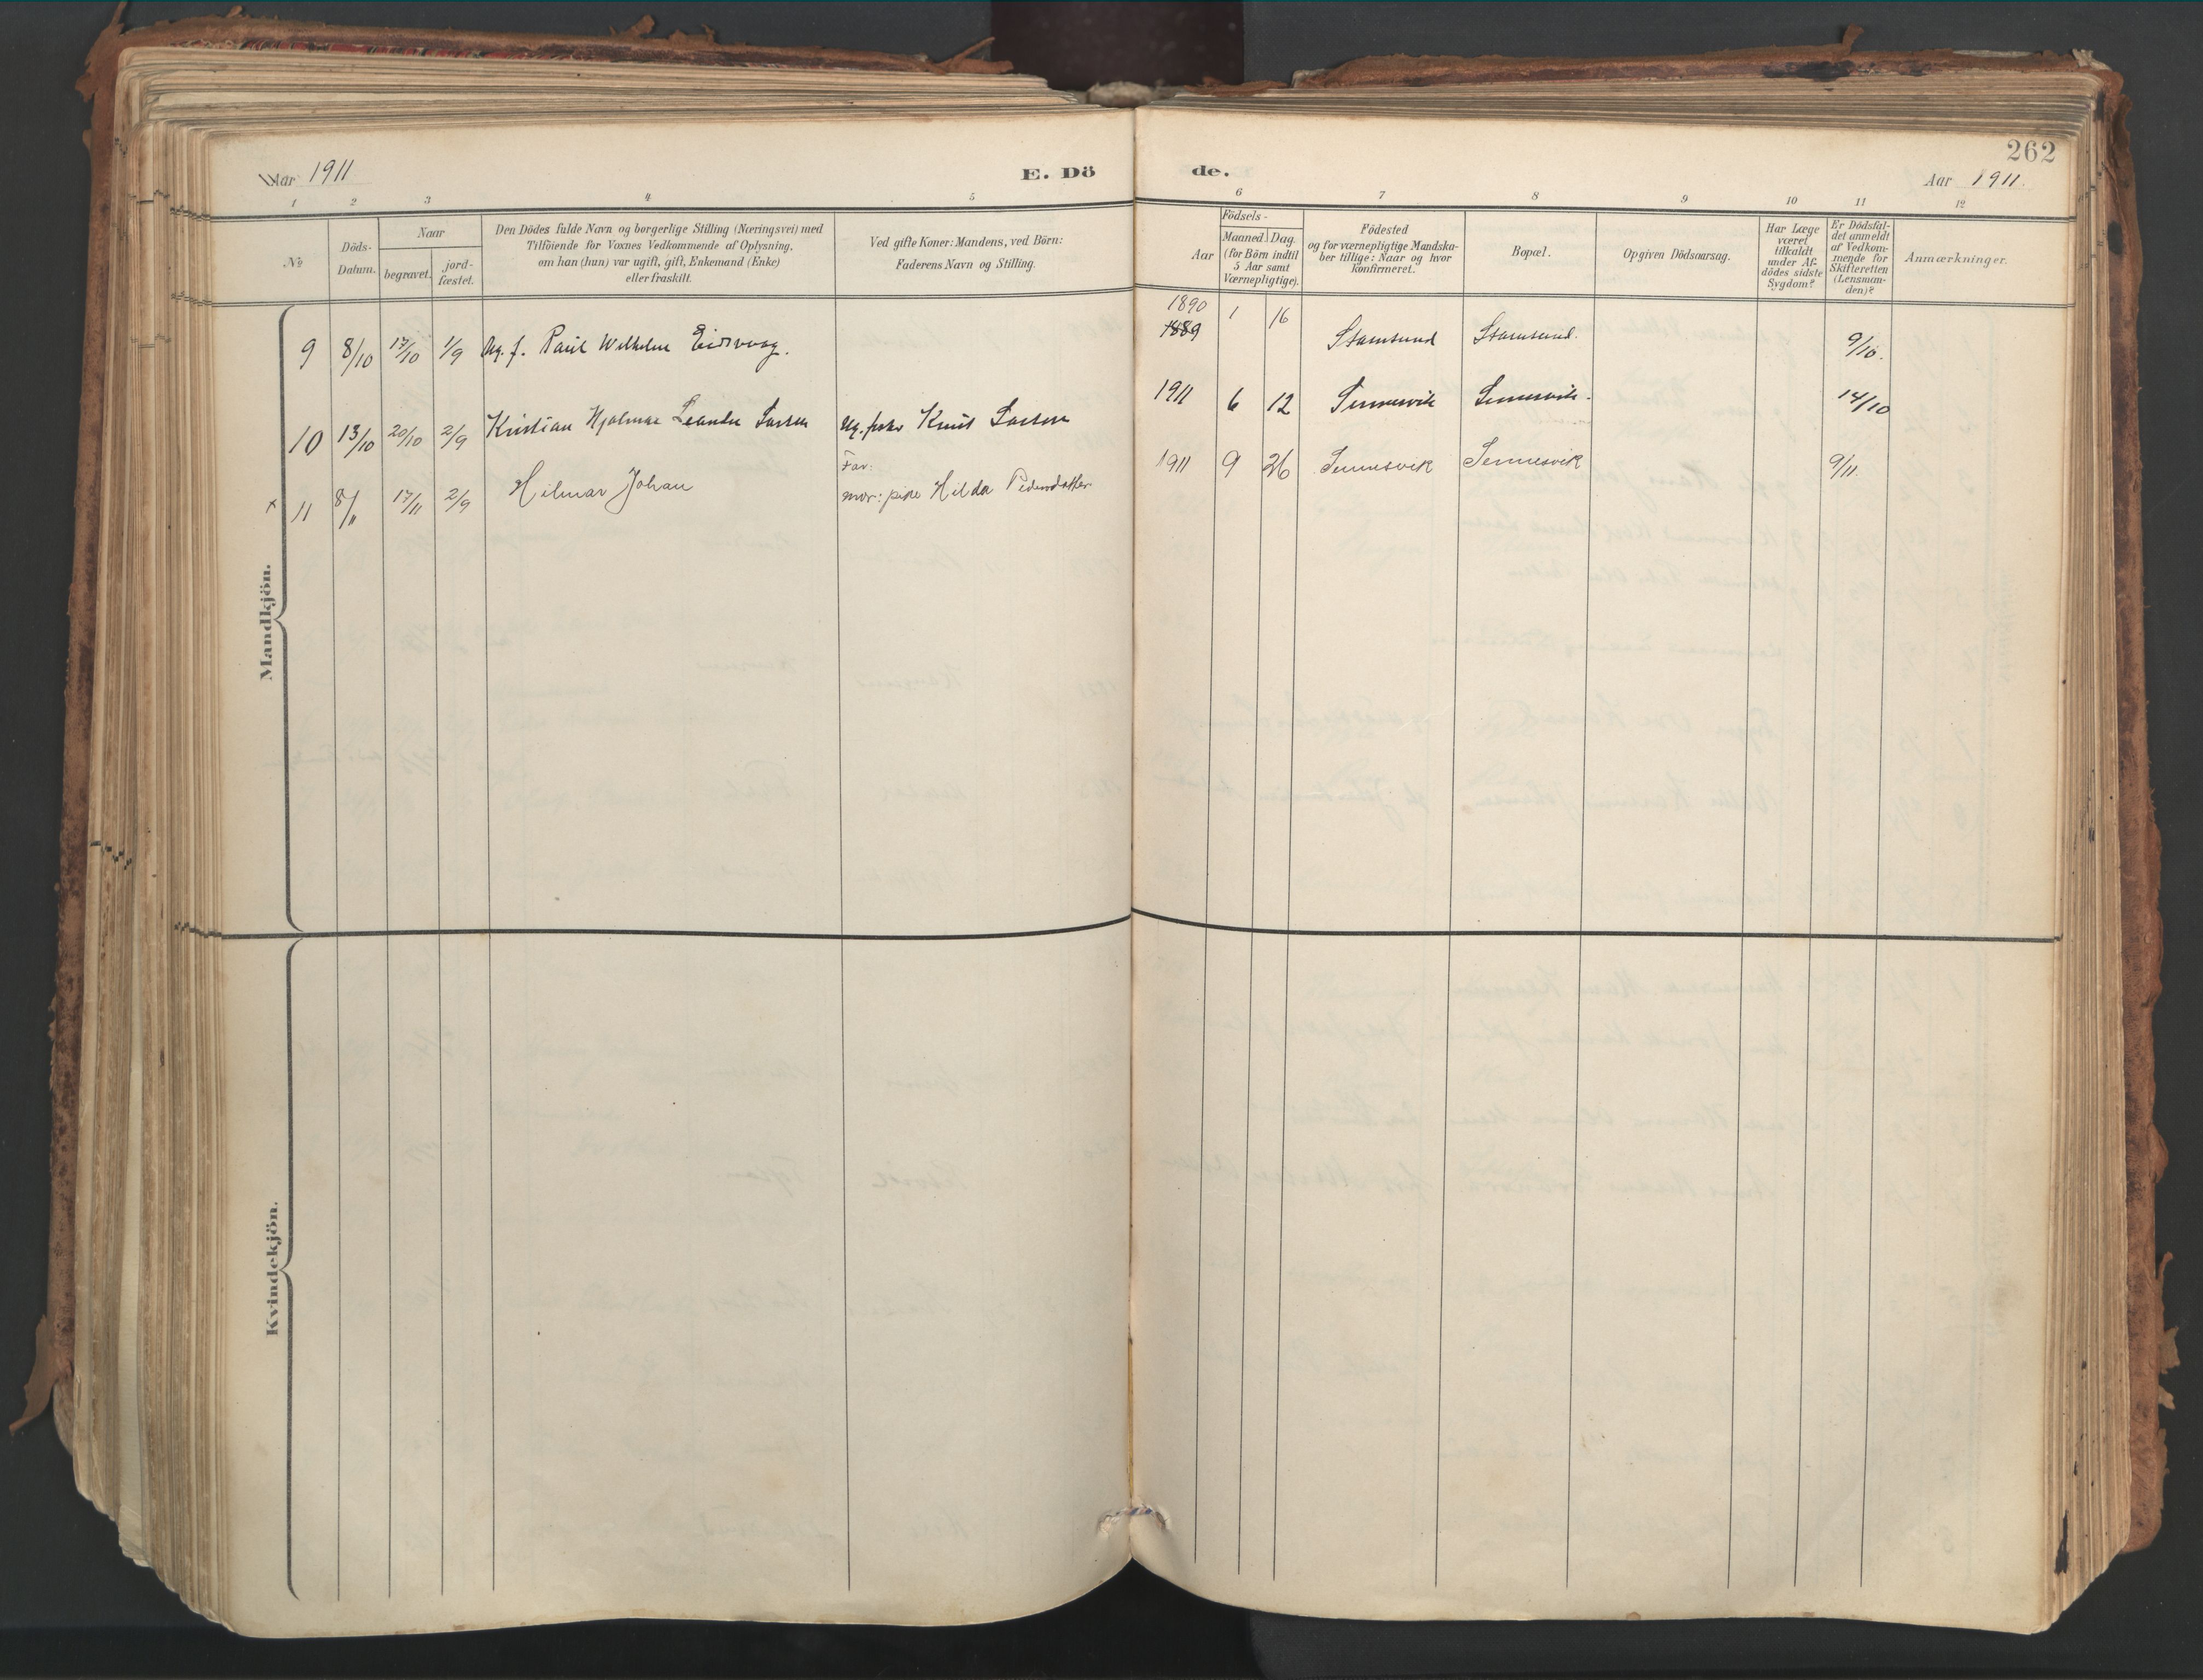 262
Aar 1911
E. Dö
de.
Aar 1911.
1 2 3 4 5
6 7 8 9 10 11 12
№
Döds-
Datum.
Naar
begravet.
jord-
fæstet.
Den Dödes fulde Navn og borgerlige Stilling (Næringsvei) med
Tilföiende for Voxnes Vedkommende af Oplysning,
om han (hun) var ugift, gift, Enkemand (Enke)
eller fraskilt.
Ved gifte Koner: Mandens, ved Börn:
Faderens Navn og Stilling.
Födsels-
Aar
Maaned. Dag.
(for Börn indtil
5 Aar samt
Værnepligtige).
Födested
og for værnepligtige Mandska-
ber tillige: Naar og hvor
konfirmeret.
Bopæl.
Opgiven Dödsaarsag.
Har Læge
været
tilkaldt
under Af-
dödes sidste
Sygdom?
Er Dödsfal-
det anmeldt
af Vedkom-
mende for
Skifteretten
(Lensman-
den)?
Anmærkninger.
Mandkjön.
9 8/10 17/10 1/9 Ug. f. Paul Wilhelm Eidsvaag.
1890
1889 1 16 Stamsund Stamsund. 9/10.
10 13/10 20/10 2/9 Kristian Hjalmar Leander Larsen Ug. fisker Knut Larsen
1911 6 12 Sennesvik Sennesvik. 14/10
Far:
× 11 8/11 17/11 2/9 Hilmar Johan mor: pike Hilda Pedersdatter
1911 9 26 Sennesvik Sennesvik 9/11.
Kvindekjön.